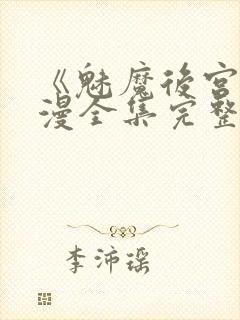 《魅魔後宮
漫全集完整
李沛瑶